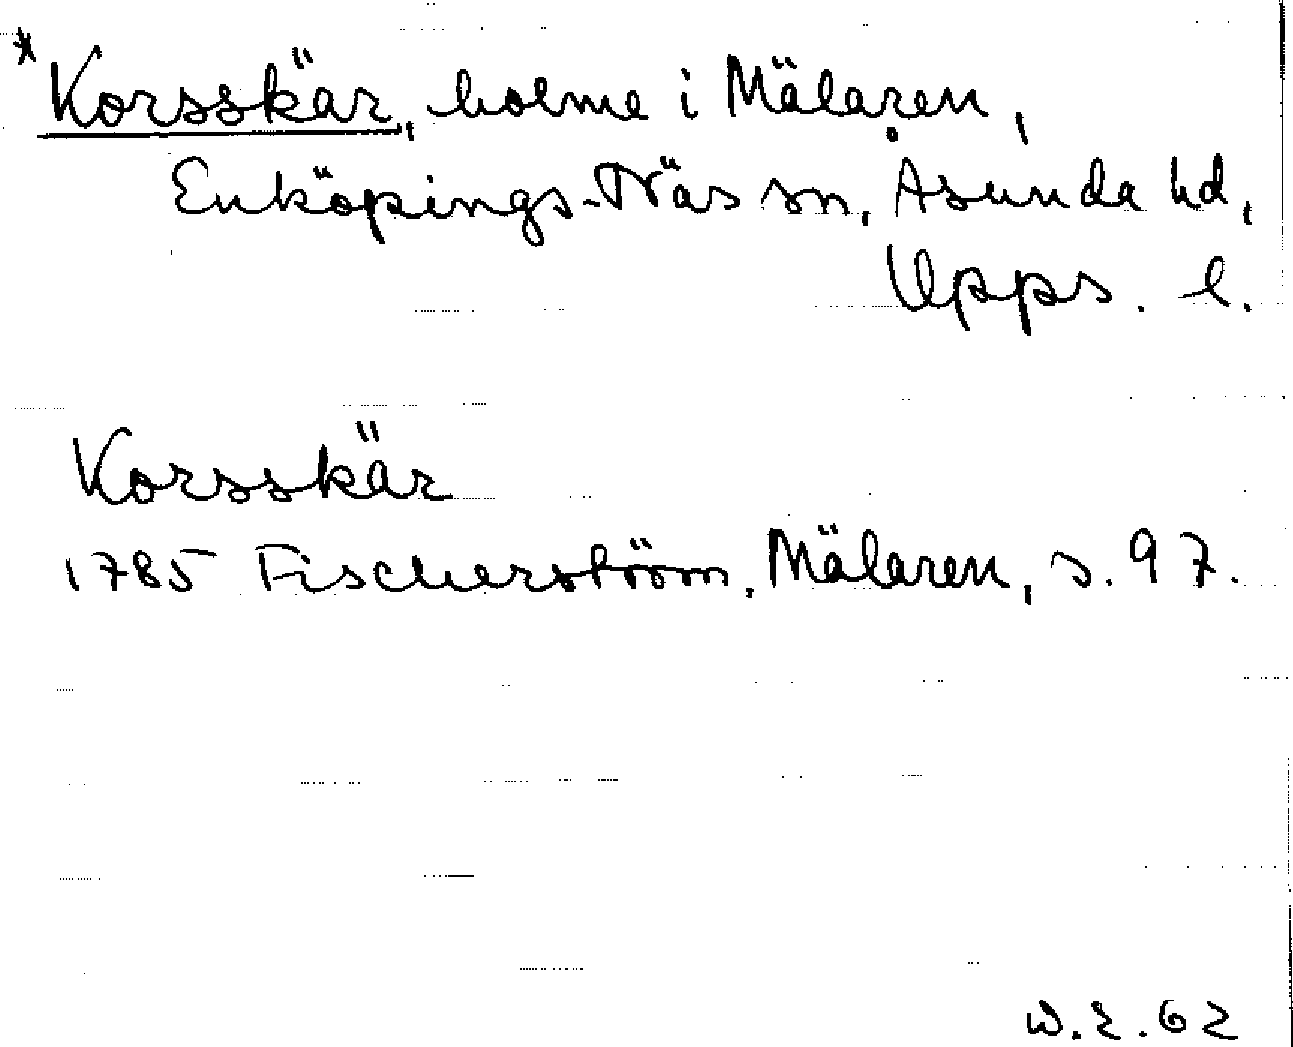 *Korsskär, holme i Mälaren,
Enköpings-Näs sn, Åsunda hd,
Upps. l.
Korsskär
1785 Fischerström, Mälaren, s. 97.
W.E.62